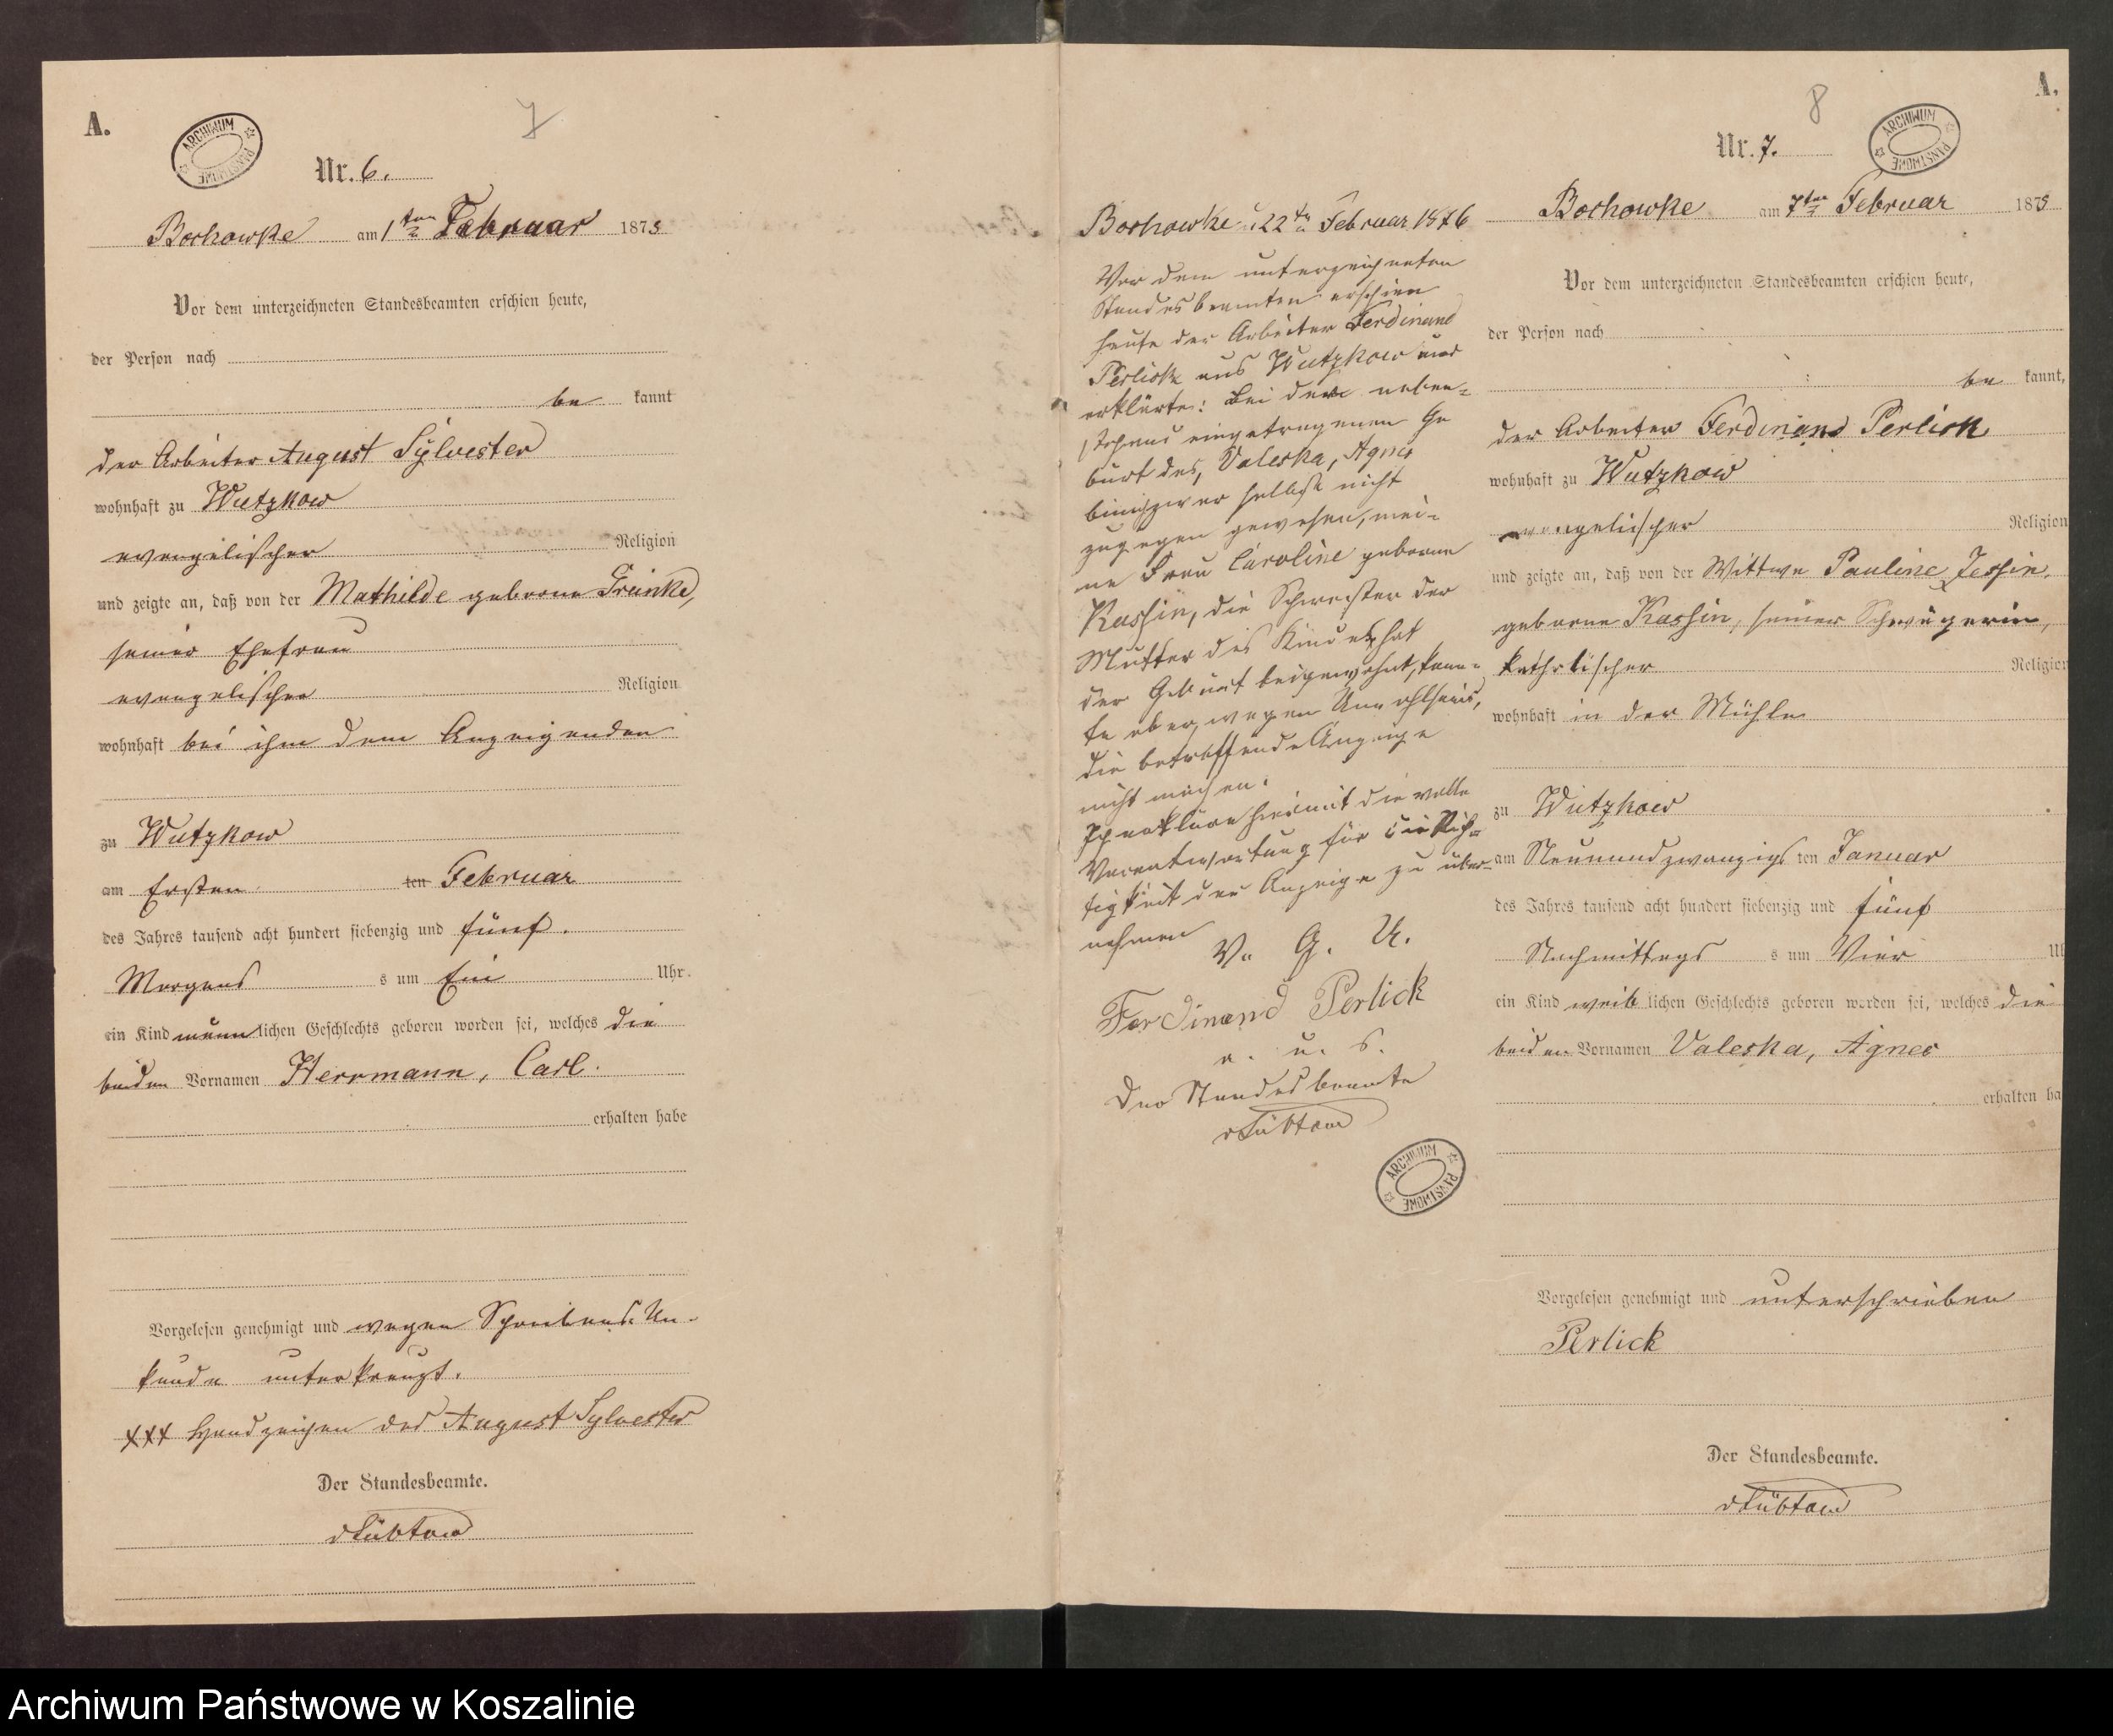 A.
ARCHIWUM PAŃSTWOWE
7
Nr. 6.
Bochowke am 1ten Februar 1875
Vor dem unterzeichneten Standesbeamten erschien heute,
der Person nach
be kannt
der Arbeiter August Sylvester
wohnhaft zu Wutzkow
evangelischer Religion
und zeigte an, daß von der Mathilde geborne Greinke,
seiner Ehefrau
evangelischer Religion
wohnhaft bei ihm dem Anzeigenden
zu Wutzkow
am Ersten ten Februar
des Jahres tausend acht hundert siebenzig und fünf.
Morgens s um Ein Uhr.
ein Kind männlichen Geschlechts geboren worden sei, welches die
beiden Vornamen Herrmann, Carl.
erhalten habe
Vorgelesen genehmigt und wegen Schreibens Un-
kunde unterkreuzt.
XXX Handzeichen des August Sylvester
Der Standesbeamte.
vLübtow
Bochowke 22ten Februar 1876
Vor dem unterzeichneten
Standesbeamten erschien
heute der Arbeiter Ferdinand
Perlick aus Wutzkow und
erklärte: Bei der neben-
stehend eingetragenen Ge
burt der, Valeska, Agnes
bin ich zwar selbst nicht
zugegen gewesen, mei-
ne Frau Caroline geborne
Kassin, die Schwester der
Mutter des Kindes hat
der Geburt beigewohnt, konn-
te aber wegen Unwohlseins,
die betreffende Anzeige
nicht machen.
Ich erkläre hiermit die volle
Verantwortung für die Rich-
tigkeit der Anzeige zu über-
nehmen
V. G. U.
Ferdinand Perlick
a. u. s.
Der Standesbeamte
vLübtow
ARCHIWUM PAŃSTWOWE
A.
8
ARCHIWUM PAŃSTWOWE
Nr. 7.
Bochowke am 7ten Februar 1875
Vor dem unterzeichneten Standesbeamten erschien heute,
der Person nach
be kannt,
der Arbeiter Ferdinand Perlick
wohnhaft zu Wutzkow
evangelischer Religion
und zeigte an, daß von der Wittwe Pauline Jessin,
geborne Kassin, seiner Schwägerin,
katholischer Religion
wohnhaft in der Mühle
zu Wutzkow
am Neunundzwanzigsten Januar
des Jahres tausend acht hundert siebenzig und fünf
Nachmittags s um Vier Uh
ein Kind weiblichen Geschlechts geboren worden sei, welches die
beiden Vornamen Valeska, Agnes
erhalten ha
Vorgelesen genehmigt und unterschrieben
Perlick
Der Standesbeamte.
vLübtow
Archiwum Państwowe w Koszalinie